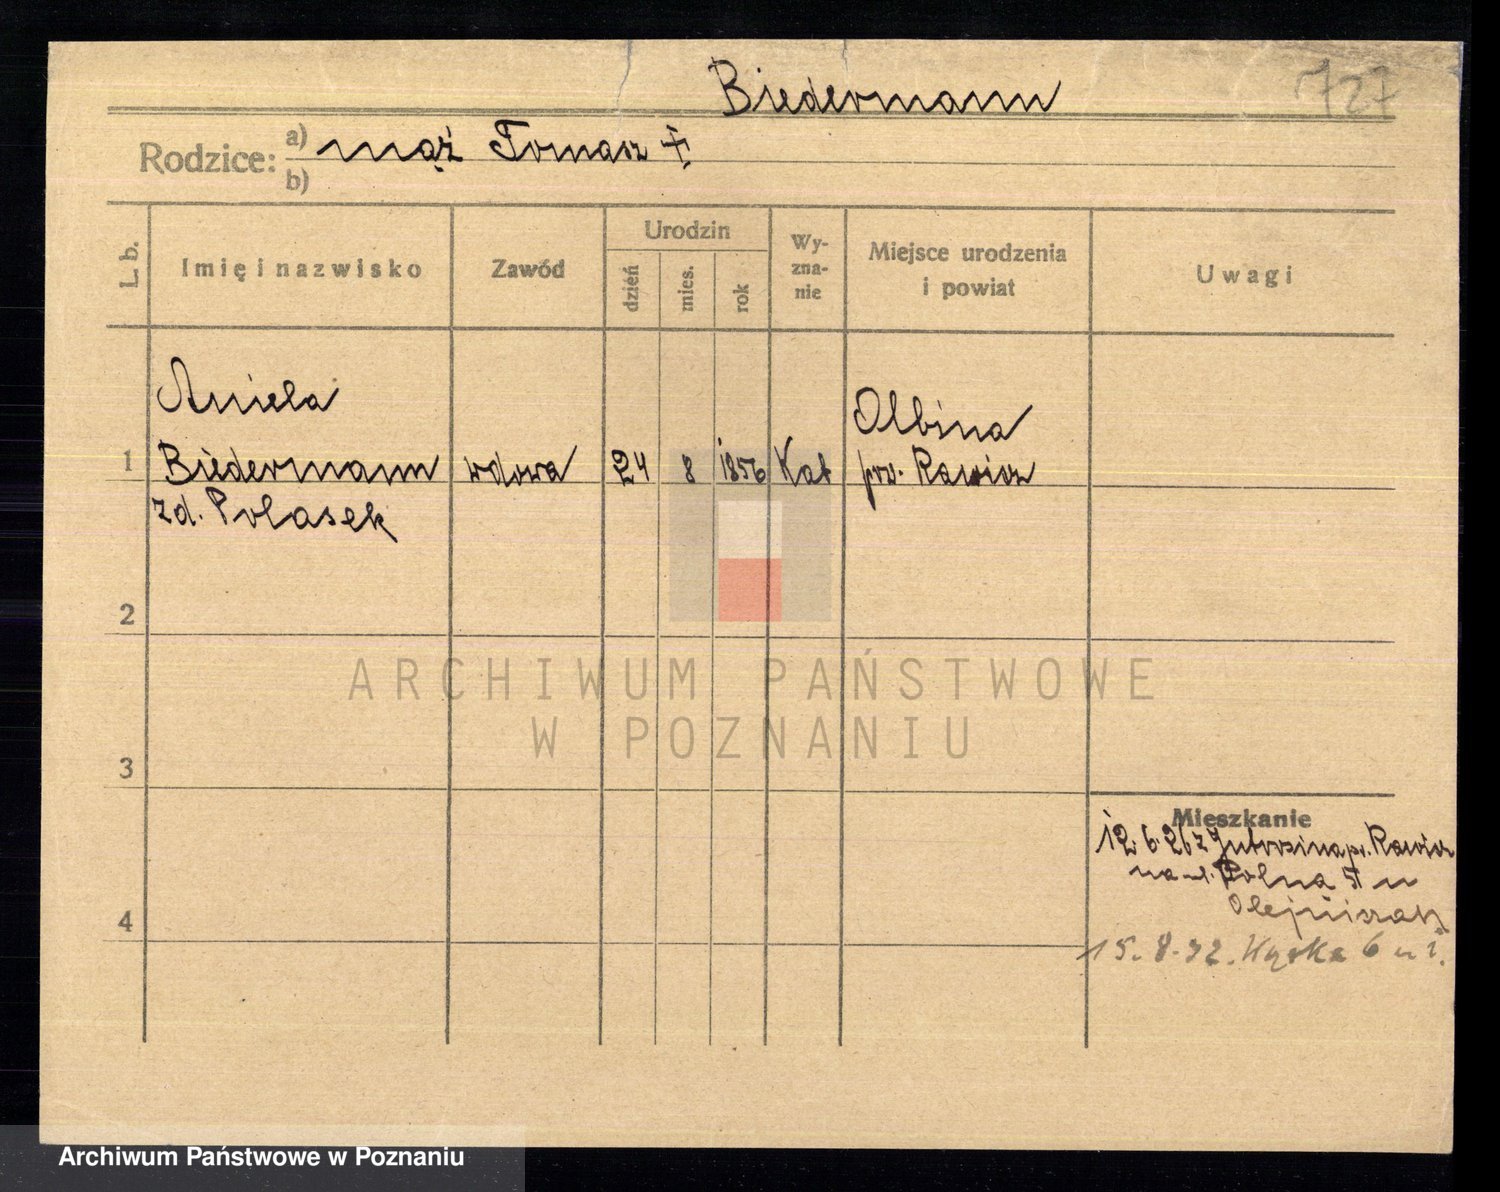 Biedermann
727
Rodzice:
a) mąż Tomasz +
b)
L. b.
Imię i nazwisko
Zawód
Urodzin
dzień
mies.
rok
Wy-
zna-
nie
Miejsce urodzenia
i powiat
Uwagi
1
Aniela
Biedermann
zd. Polasek
wdowa
24
8
1856
Kat
Olbina
pow. Rawicz
2
3
4
Mieszkanie
12.6.26 z Jutrosina p. Rawicz
na ul. Polna 5
15.8.32.
ARCHIWUM PAŃSTWOWE
W POZNANIU
Archiwum Państwowe w Poznaniu